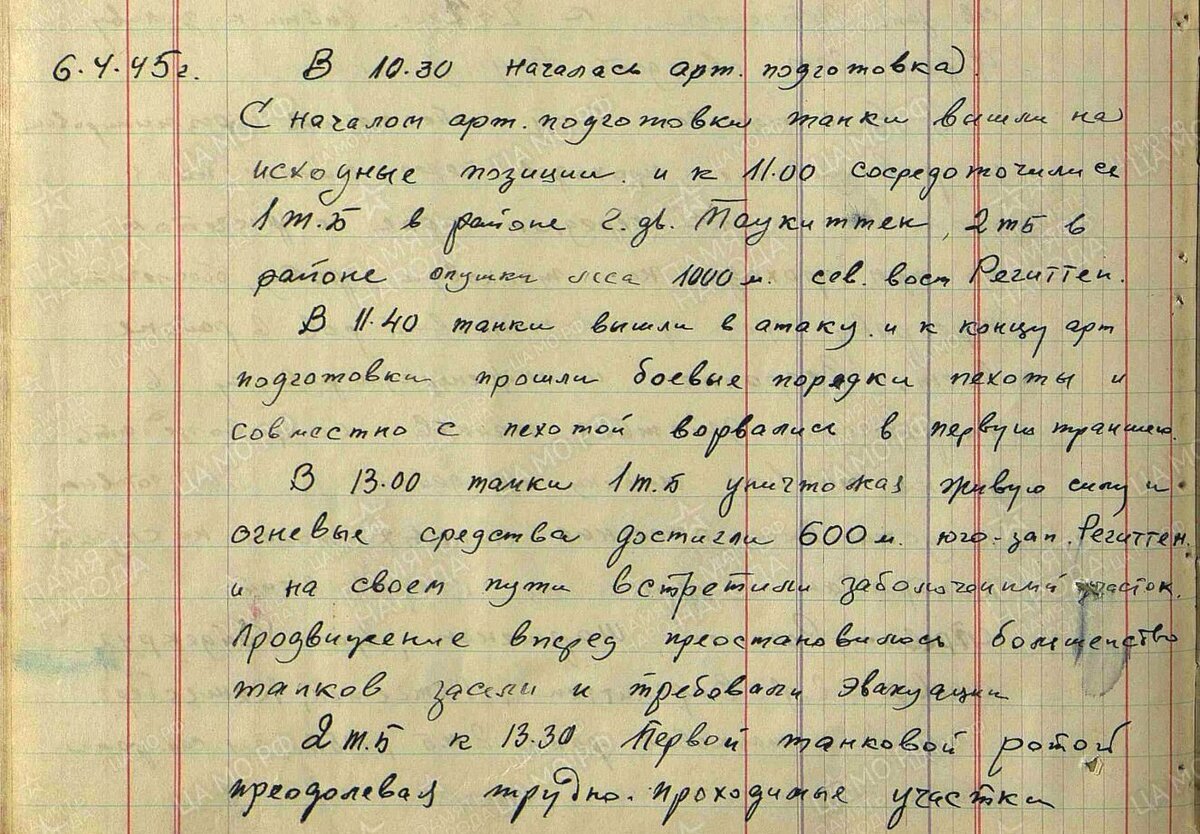 6.4.45г. В 10.30 началась арт. подготовка.
С началом арт. подготовки танки вышли на
исходные позиции. и к 11.00 сосредоточились
1 т.Б в районе г. дв. Таукиттен, 2 тБ в
районе опушки леса 1000 м. сев. вост Регитен.
В 11.40 танки вышли в атаку. и к концу арт
подготовки прошли боевые порядки пехоты и
совместно с пехотой ворвались в первую траншею.
В 13.00 танки 1 т.Б уничтожая живую силу и
огневые средства достигли 600 м. юго-зап. Регитен.
и на своем пути встретили заболоченный участок.
Продвижение вперед преостановилось большенство
танков засели и требовали эвакуации
2 т.Б к 13.30 Первой танковой ротой
преодолевая трудно. проходимые участки